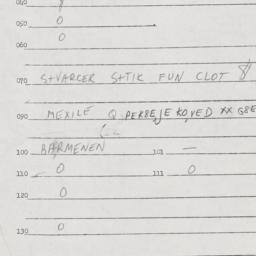 040 8
050 0
060 0
070 S+VARCER S+TIK FUN CLOT 8
090 MEXILE Q PERSEJE KO,VED XX
100 BARMENEN 101 —
110 0 111 0
120 0
130 0